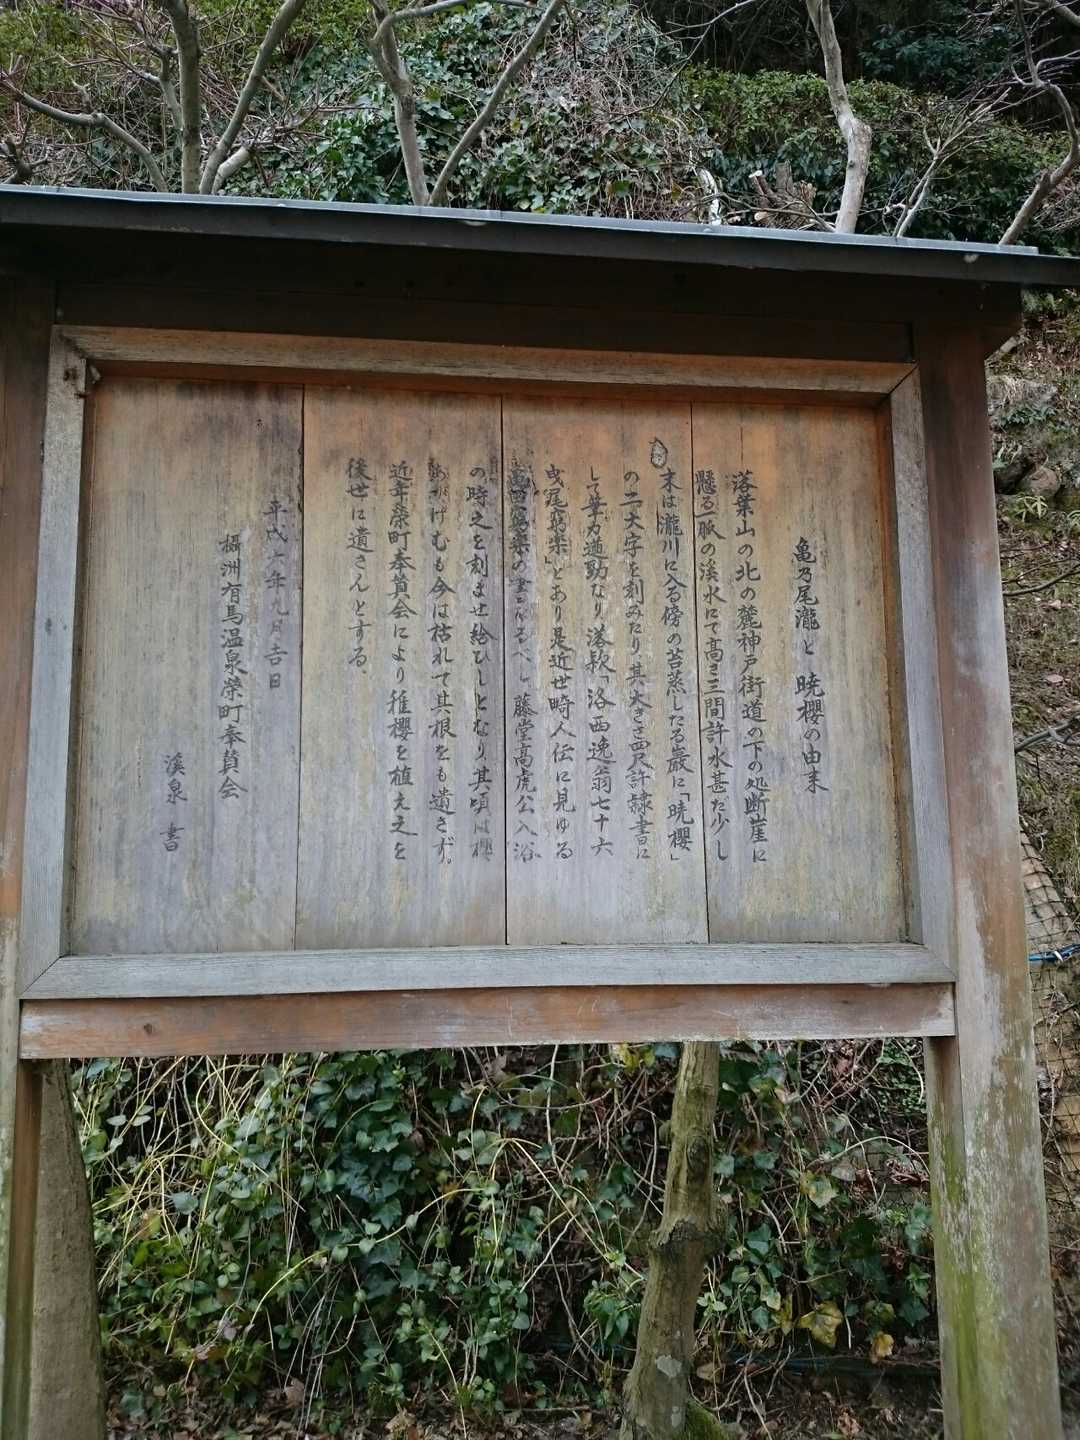 亀乃尾瀧と 暁櫻の由来
落葉山の北の麓神戸街道の下の処断崖に
懸る一脈の溪水にて高さ三間許水甚だ少し
末は瀧川に入る傍の苔蒸したる巌に「暁櫻」
の二大字を刻みたり其大きさ四尺許隷書に
して筆力遒勁なり落款「洛西逸翁七十六
曳尾 とあり是近世畸人伝に見ゆる
の書なるべし藤堂高虎公入浴
の時之を刻ませ給ひしとなり其頃は櫻
も今は枯れて其根をも遺さず。
近年榮町奉賛会により稚櫻を植え之を
後世に遺さんとする、
平成六年九月吉日
摂洲有馬温泉榮町奉賛会
溪泉 書